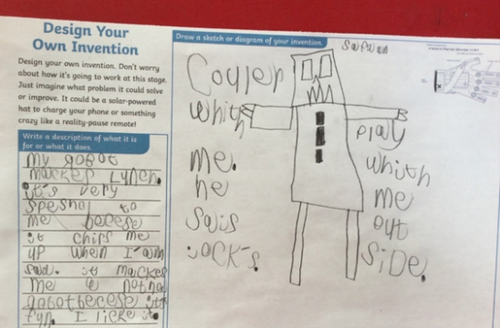 Design Your
Own Invention
Design your own invention. Don't worry
about how it's going to work at this stage.
Just imagine what problem it could solve
or improve. It could be a solar-powered
hat to charge your phone or something
crazy like a reality-pause remote!
Write a description of what it is
for or what it does.
my robot
mackes Lynch.
it's very
speshal to
me becese
it chirs me
up when I am
sad. it mackes
me a
becese it
fun. I licke it.
Draw a sketch or diagram of your invention.
Couler
whith
me.
he
sais
jock's.
play
whith
me
out
side.